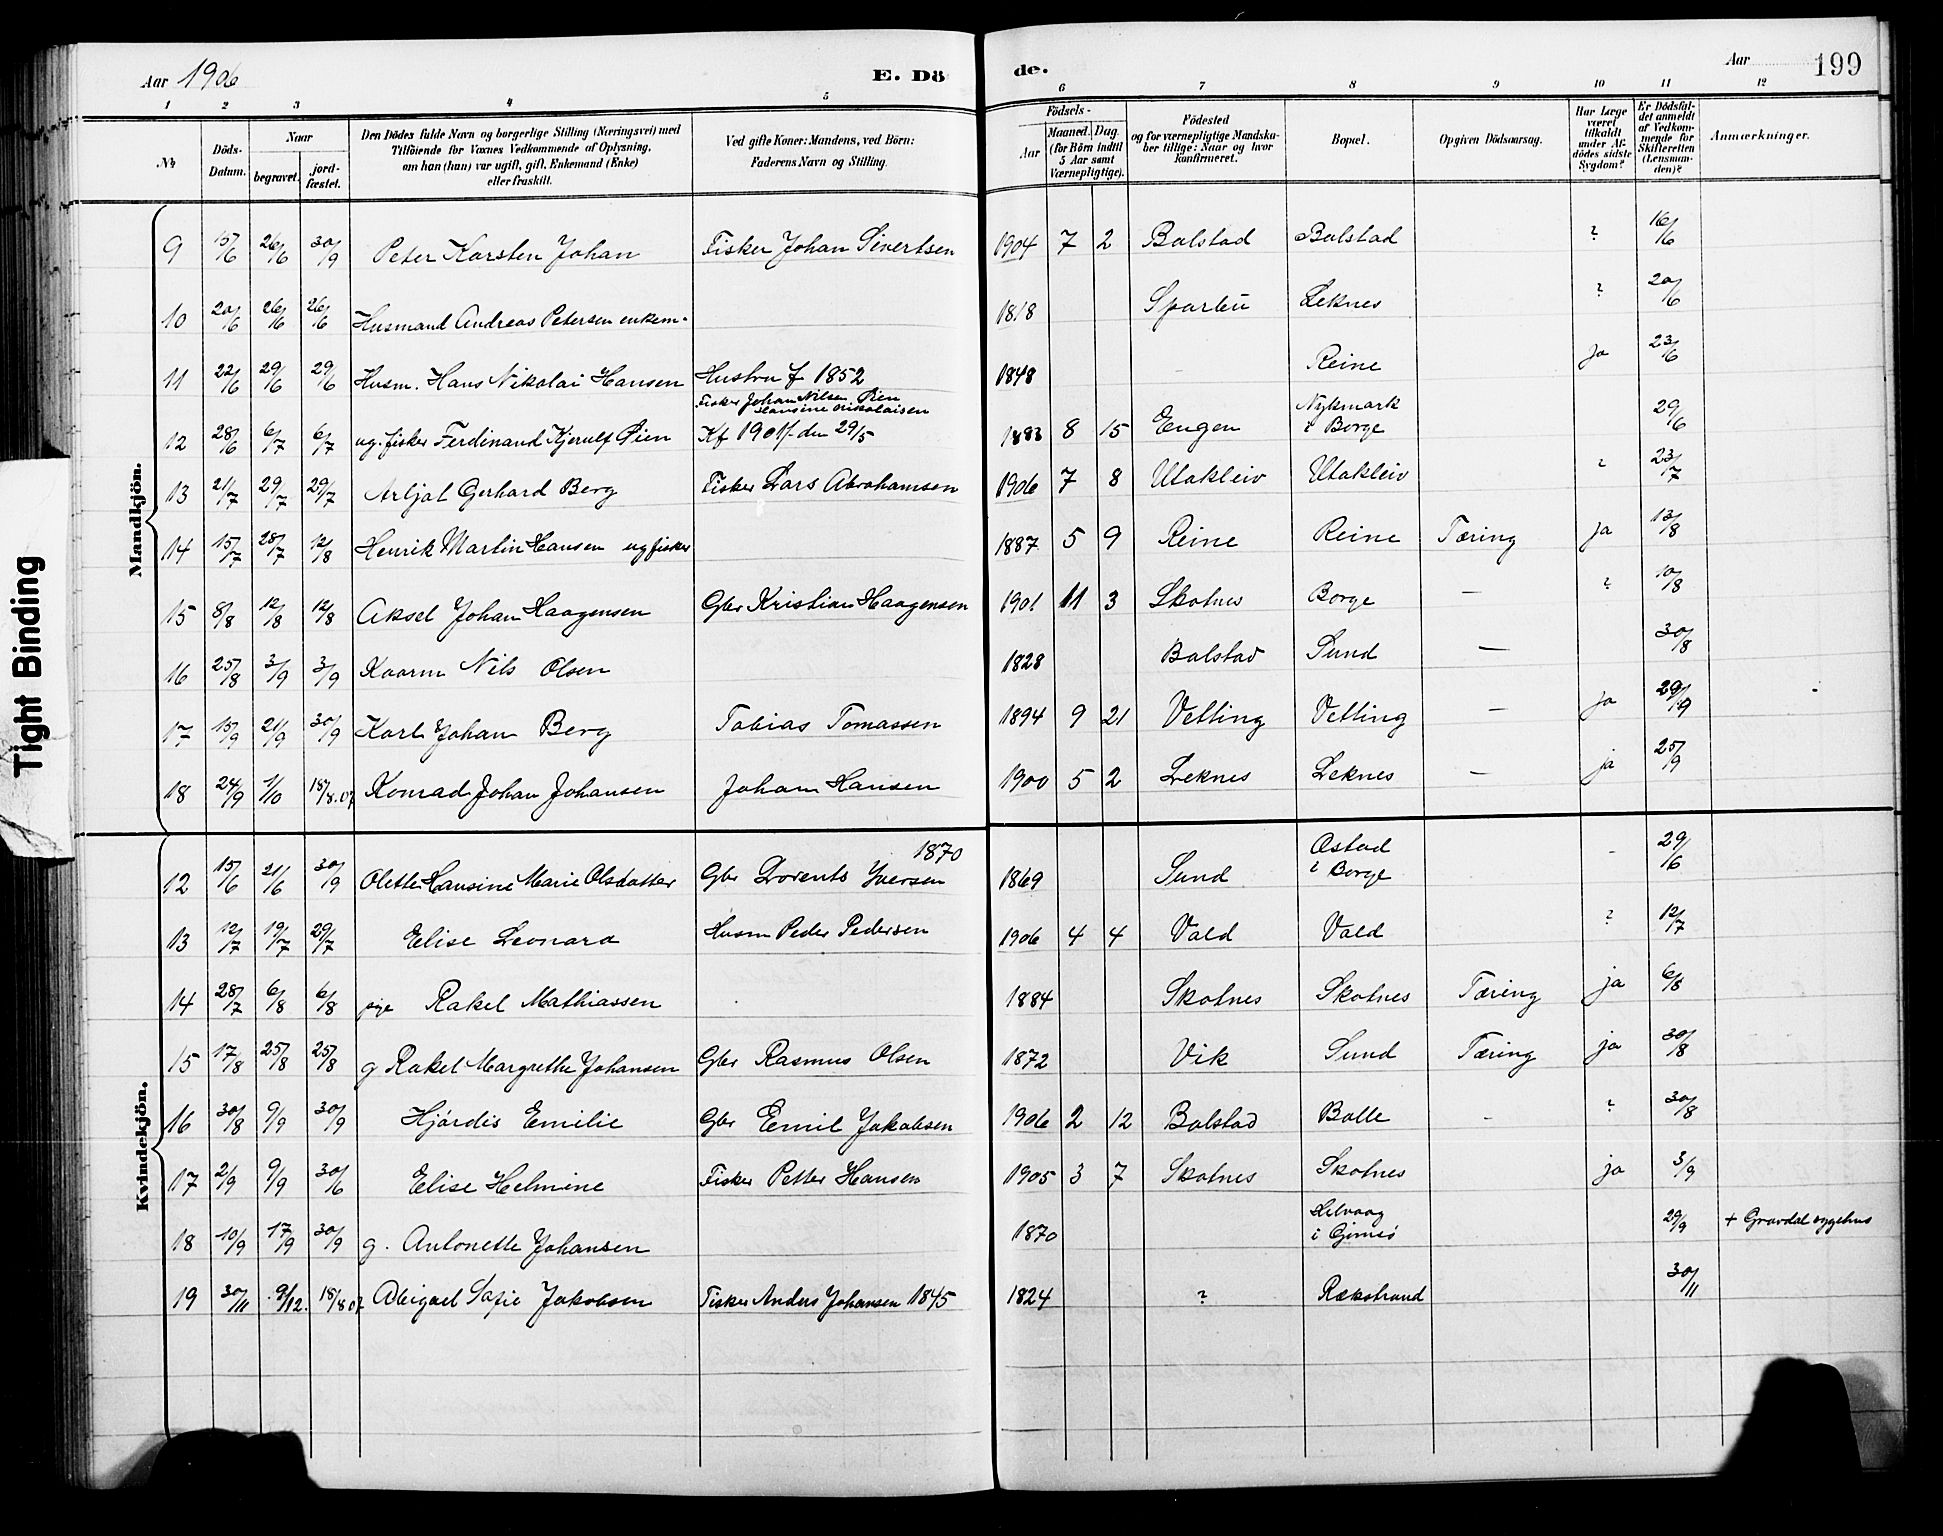 Aar 1906 E. Dö de. Aar 199
1 2 3 4 5 6 7 8 9 10 11 12
№ Döds-Datum. Naar begravet. jordfæstet. Den Dödes fulde Navn og borgerlige Stilling (Næringsvei) med Tilföiende for Voxnes Vedkommende af Oplysning, om han (hun) var ugift, gift, Enkemand (Enke) eller fraskilt. Ved gifte Koner: Mandens, ved Börn: Faderens Navn og Stilling. Födsels- Aar Maaned. Dag. (for Börn indtil 5 Aar samt Værnepligtige). Födested og for værnepligtige Mandskaber tillige: Naar og hvor konfirmeret. Bopæl. Opgiven Dödsaarsag. Har Læge været tilkaldt under Afdödes sidste Sygdom? Er Dödsfaldet anmeldt af Vedkommende for Skifteretten (Lensmanden)? Anmærkninger.
Mandkjön.
9 15/6 26/6 30/9 Peter Karsten Johan Fisker Johan Sivertsen 1904 7 2 Balstad Balstad ? 16/6
10 20/6 26/6 26/6 Husmand Andreas Petersen enkem. 1818 Sparbu Leknes ? 20/6
11 22/6 29/6 29/6 Husm. Hans Nikolai Hansen Hustru f 1852 1848 - Reine ja 23/6
Fisker Johan Nilsen Øien
Hansine Nikolaisen Nykmark
12 28/6 6/7 6/7 ug. fisker Ferdinand Kjerulf Øien Kf 1901/- den 29/5 1883 8 15 Eugen i Borge 29/6
13 21/7 29/7 29/7 Arljot Gerhard Berg Fisker Lars Abrahamsen 1906 7 8 Utakleiv Utakleiv ? 23/7
14 15/7 28/7 12/8 Henrik Martin Hansen ug fisker 1887 5 9 Reine Reine Tæring ja 13/8
15 8/8 12/8 12/8 Aksel Johan Haagensen Gbr Kristian Haagensen 1901 11 3 Skotnes Borge - ? 10/8
16 25/8 3/9 3/9 Kaarm Nils Olsen 1828 Balstad Sund - 30/8
17 15/9 21/9 30/9 Karl Johan Berg Tobias Tomassen 1894 9 21 Vetting Vetting - ja 29/9
18 24/9 1/10 18/8.07 Konrad Johan Johansen Johan Hansen 1900 5 2 Leknes Leknes - ja 25/9
Kvindekjön.
1870 Østad
12 15/6 21/6 30/9 Olette Hansine Marie Olsdatter Gbr Lorents Iversen 1869 Sund i Borge - 29/6
13 12/7 19/7 29/7 Elise Leonara Husm Peder Pedersen 1906 4 4 Vold Vold ? 12/7
14 28/7 6/8 6/8 pige Rakel Mathiassen 1884 Skotnes Skotnes Tæring ja 6/8
15 17/8 25/8 25/8 g Rakel Margrethe Johansen Gbr Rasmus Olsen 1872 Vik Sund Tæring ja 30/8
16 30/8 9/9 30/9 Hjørdis Emilie Gbr Emil Jakobsen 1906 2 12 Balstad Balle - ? 30/8
17 2/9 9/9 30/6 Elise Helmine Fisker Petter Hansen 1905 3 7 Skotnes Skotnes ja 3/9
18 10/9 17/9 30/9 g. Antonette Johansen 1870 Lilvaag i Gimsø 29/9 + Gravdal sygehus
19 30/11 9/12. 18/8 07 Abigael Sofie Jakobsen Fisker Anders Johansen 1845 1824 ? Rækstrand 30/11
Tight Binding